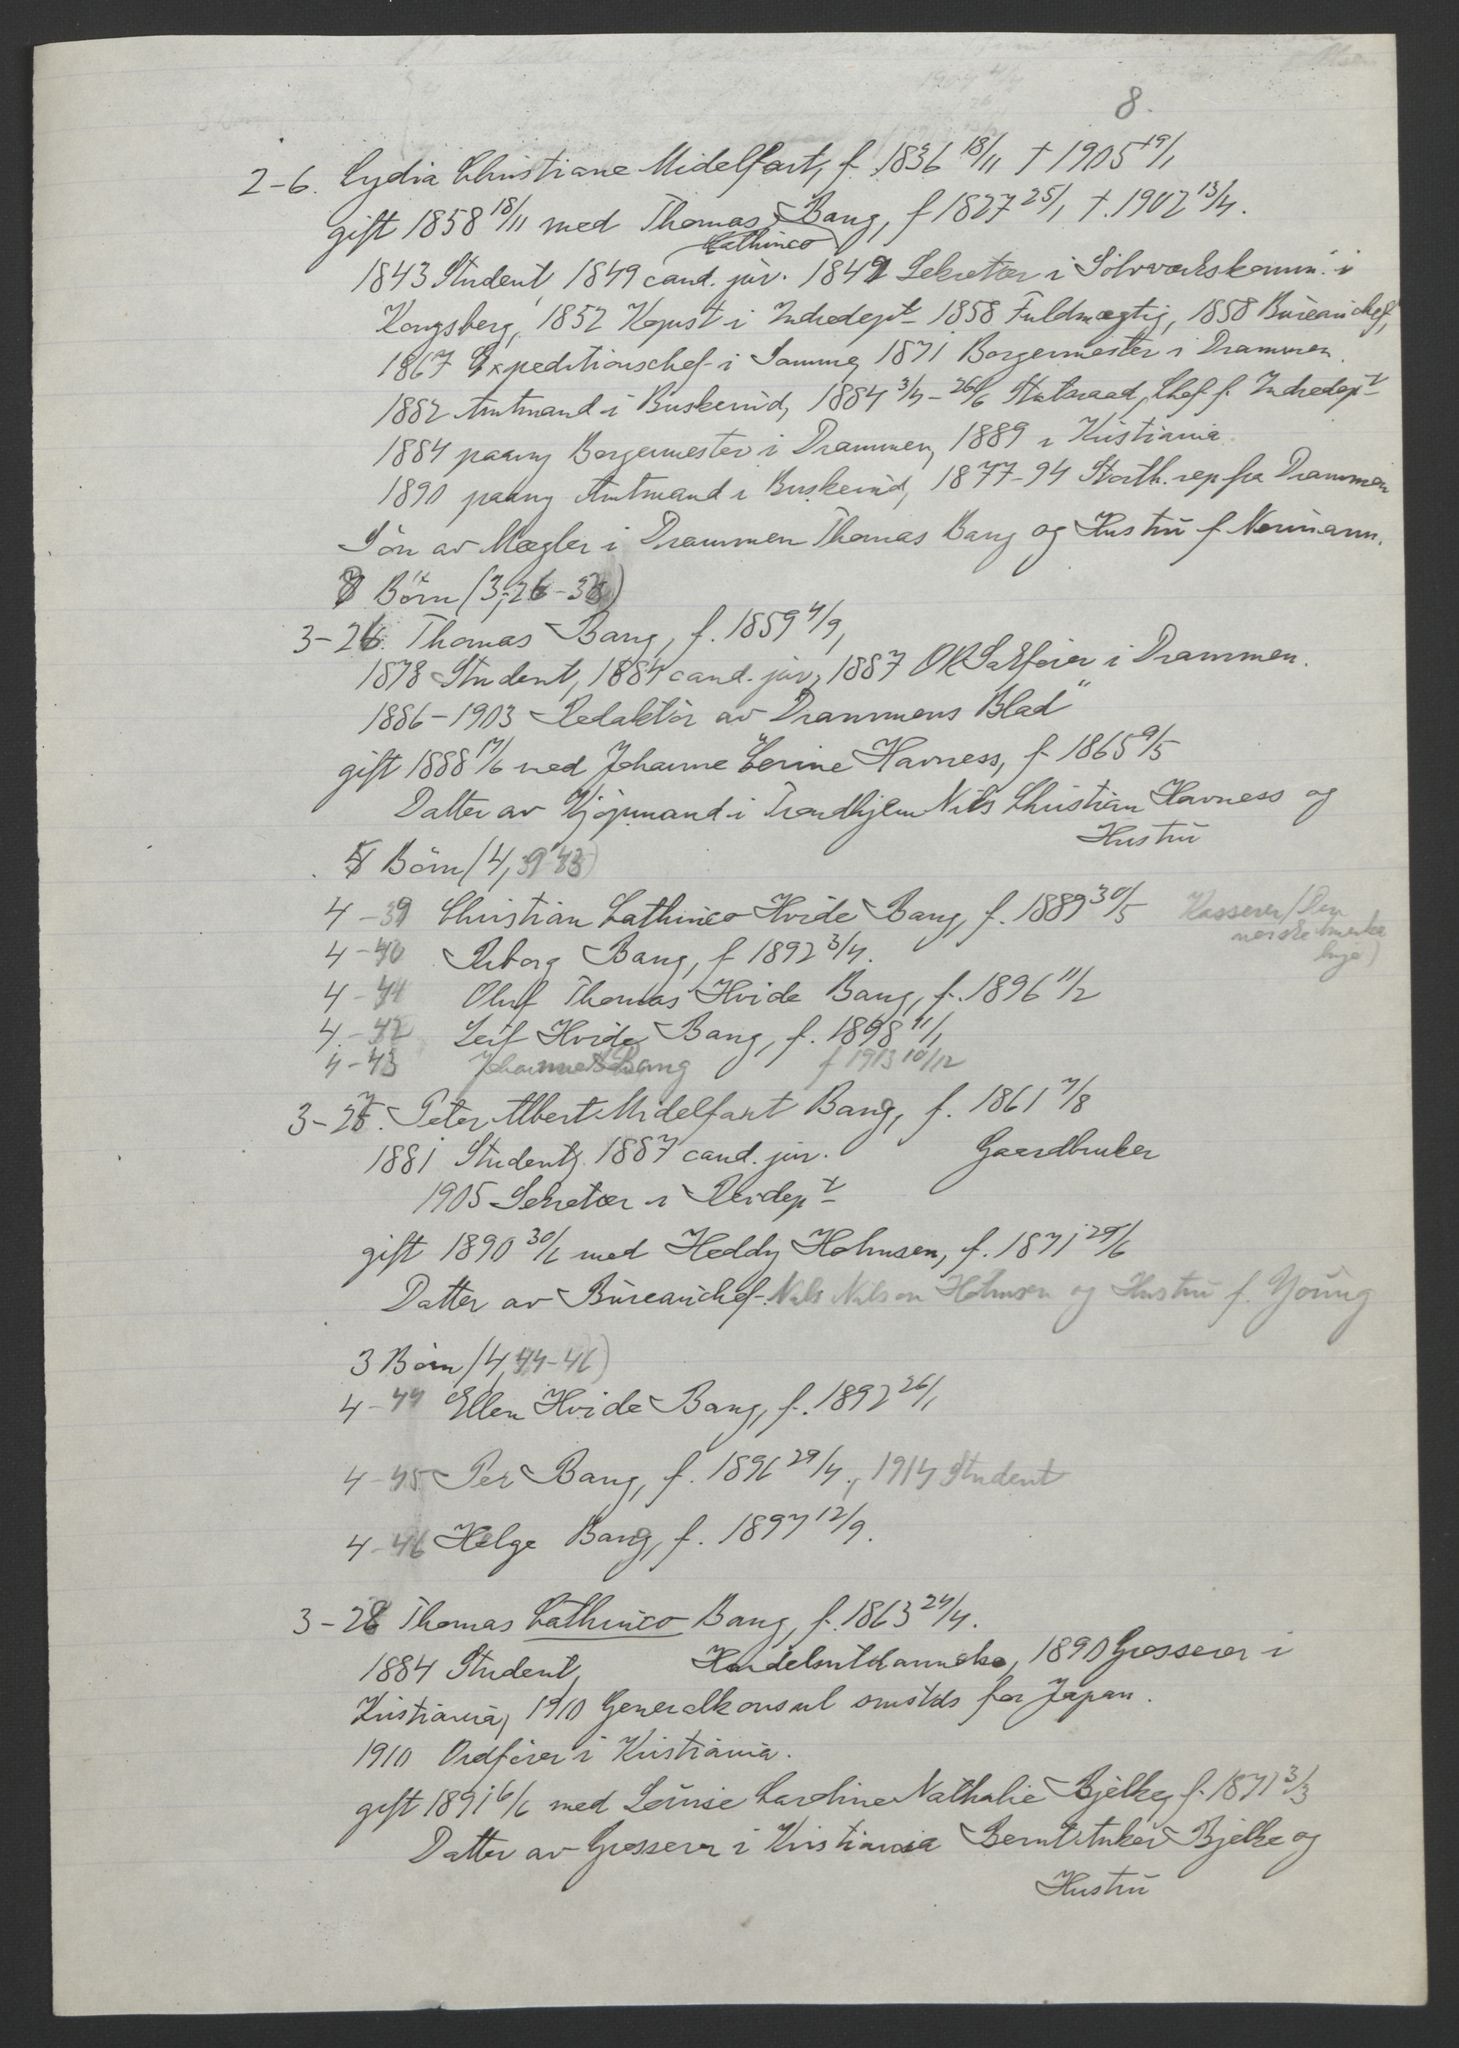 8.
2-6. Lydia Christiane Midelfart, f. 1836 18/11 † 1905 19/1
gift 1858 18/11 med Thomas Bang, f 1827 25/1 †. 1902 13/4.
Cathinco
1843 Student, 1849 cand. jur. 1849 Sekretær i Sölvverkskomm. i
Kongsberg, 1852 Kopist i Indredept 1858 Fuldmægtig, 1858 Bureauchef,
1867 Expeditionschef i Samme, 1871 Borgermester i Drammen.
1882 Amtmand i Buskerud, 1884 3/4 - 26/6 Statsraad, Chef f. Indredept
1884 paany Borgermester i Drammen, 1889 i Kristiania
1890 paany Amtmand i Buskerud, 1877-94 Storth. rep fra Drammen
Sön av Mægler i Drammen Thomas Bang og Hustru f. Neumann.
Börn (3, 26-
3-26. Thomas Bang, f. 1859 4/9,
1878 Student, 1884 cand. jur, 1887 OR Sakförer i Drammen.
1886-1903 Redaktör av Drammens Blad"
gift 1888 17/6 med Johanne Lerine Havness, f. 1865 9/5
Datter av Kjöpmand i Trondhjem Nils Christian Havness og
Hustru
5 Börn (4, 39-43)
4-39 Christian Cathinco Hvide Bang, f. 1889 30/5 Kasserer (Den
norske Amerika
linje)
4-40 Reborg Bang, f 1892 3/4.
4-41 Oluf Thomas Hvide Bang, f. 1896 11/2
4-42 Leif Hvide Bang, f. 1898 11/1
4-43 Johanne Bang f 1913 10/12
3-27. Peter Albert Midelfart Bang, f. 1861 7/8
1881 Student, 1887 cand. jur. Gaardbruker
1905 Sekretær i Revdept
gift 1890 30/6 med Heddy Holmsen, f. 1871 29/6
Datter av Bureauchef Nils Nilsen Holmsen og Hustru f. Young
3 Börn (4, 44-46)
4-44 Ellen Hvide Bang, f. 1892 26/1
4-45 Per Bang, f. 1896 29/4., 1914 Student
4-46 Helge Bang, f. 1897 12/9.
3-28 Thomas Cathinco Bang, f. 1863 24/4.
1884 Student, Handelsutdannelse, 1890 Grosserer i
Kristiania, 1910 Generalkonsul smstds for Japan.
1910 Ordförer i Kristiania.
gift 1891 6/6 med Louise Caroline Nathalie Bjelke, f. 1871 3/3
Datter av Grosserer i Kristiania Bernt Anker Bjelke og
Hustru